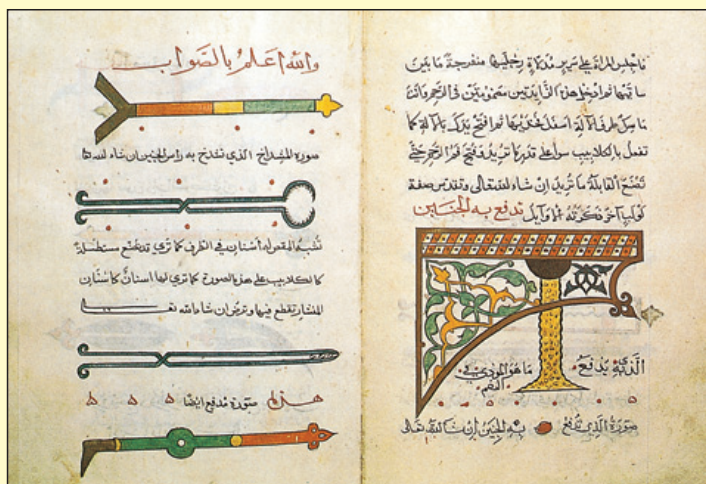 فاجلس المراة على سرير مدلاة رجليها منفرجة ما بين
ساقيها ثم ادخل هذين الزايدتين مضمومتين في الرحم وانت
ماسك طرف الآلة اسفل فخذيها ثم افتح يدك بالآلة كما
تفعل بالكلاليب سوا على قدر ما تريد فتح فم الرحم حتى
تصنع القابلة ما تريد ان شاء الله تعالى وتقدس صفة
لولب آخر ذكرته الاوايل تدفع به الجنين
الذي يدفع ما هو المؤذي في
صورة الذي تدفع به الجنين ان شا الله تعالى
والله اعلم بالصواب
صورة المشداخ الذي تشدخ به راس الجنين ان شاء الله تعا
تشبه المقص له أسنان في الطرف كما ترى قد تصنع مستطيلة
كالكلاليب على هذه الصورة كما ترى لها اسنان كاسنان
المنشار تقطع فيها وترض ان شاء الله تعا
صورة مدفع ايضا ه ه ه